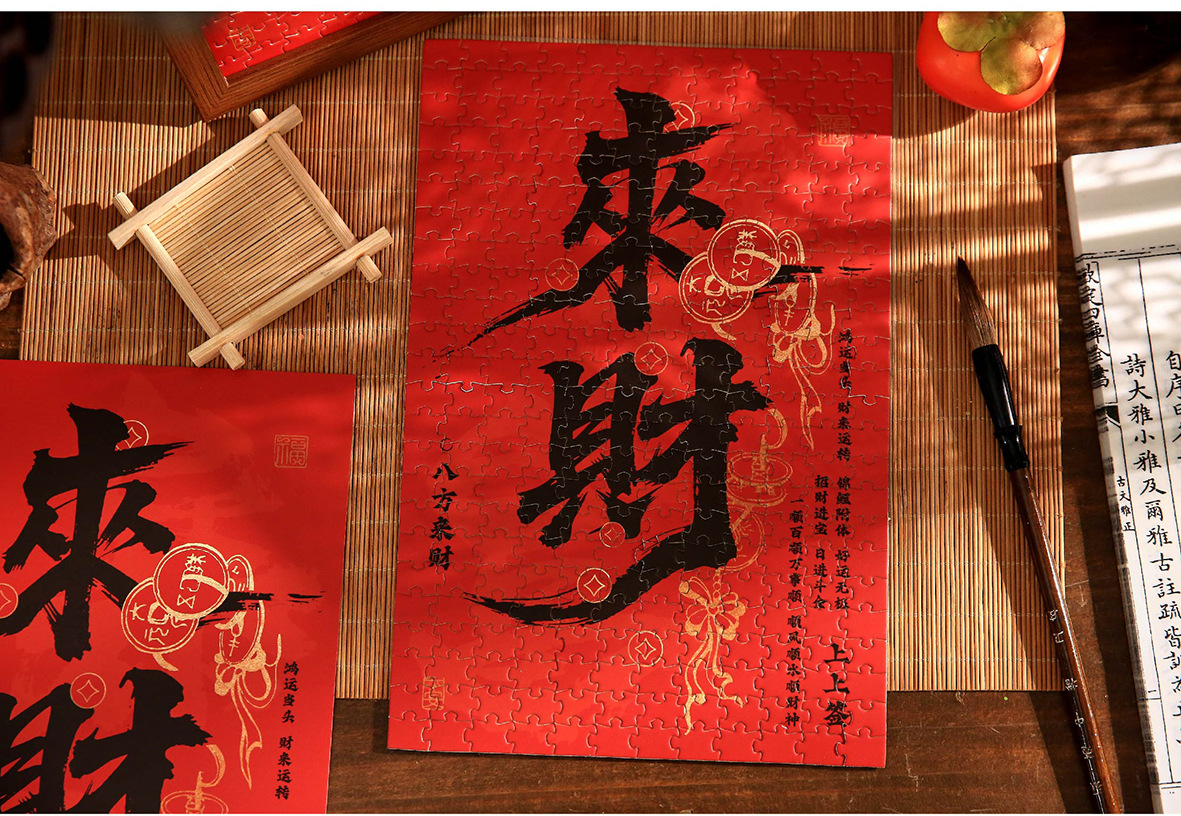 來財
八方來財
鸿运当头 财来运转
锦鲤附体 好运无极
招财进宝 日进斗金
一顺百顺万事顺 顺风顺水顺财神
上上签
來財
鸿运当头 财来运转
欽定四庫全書
詩大雅小雅及爾雅古註疏皆